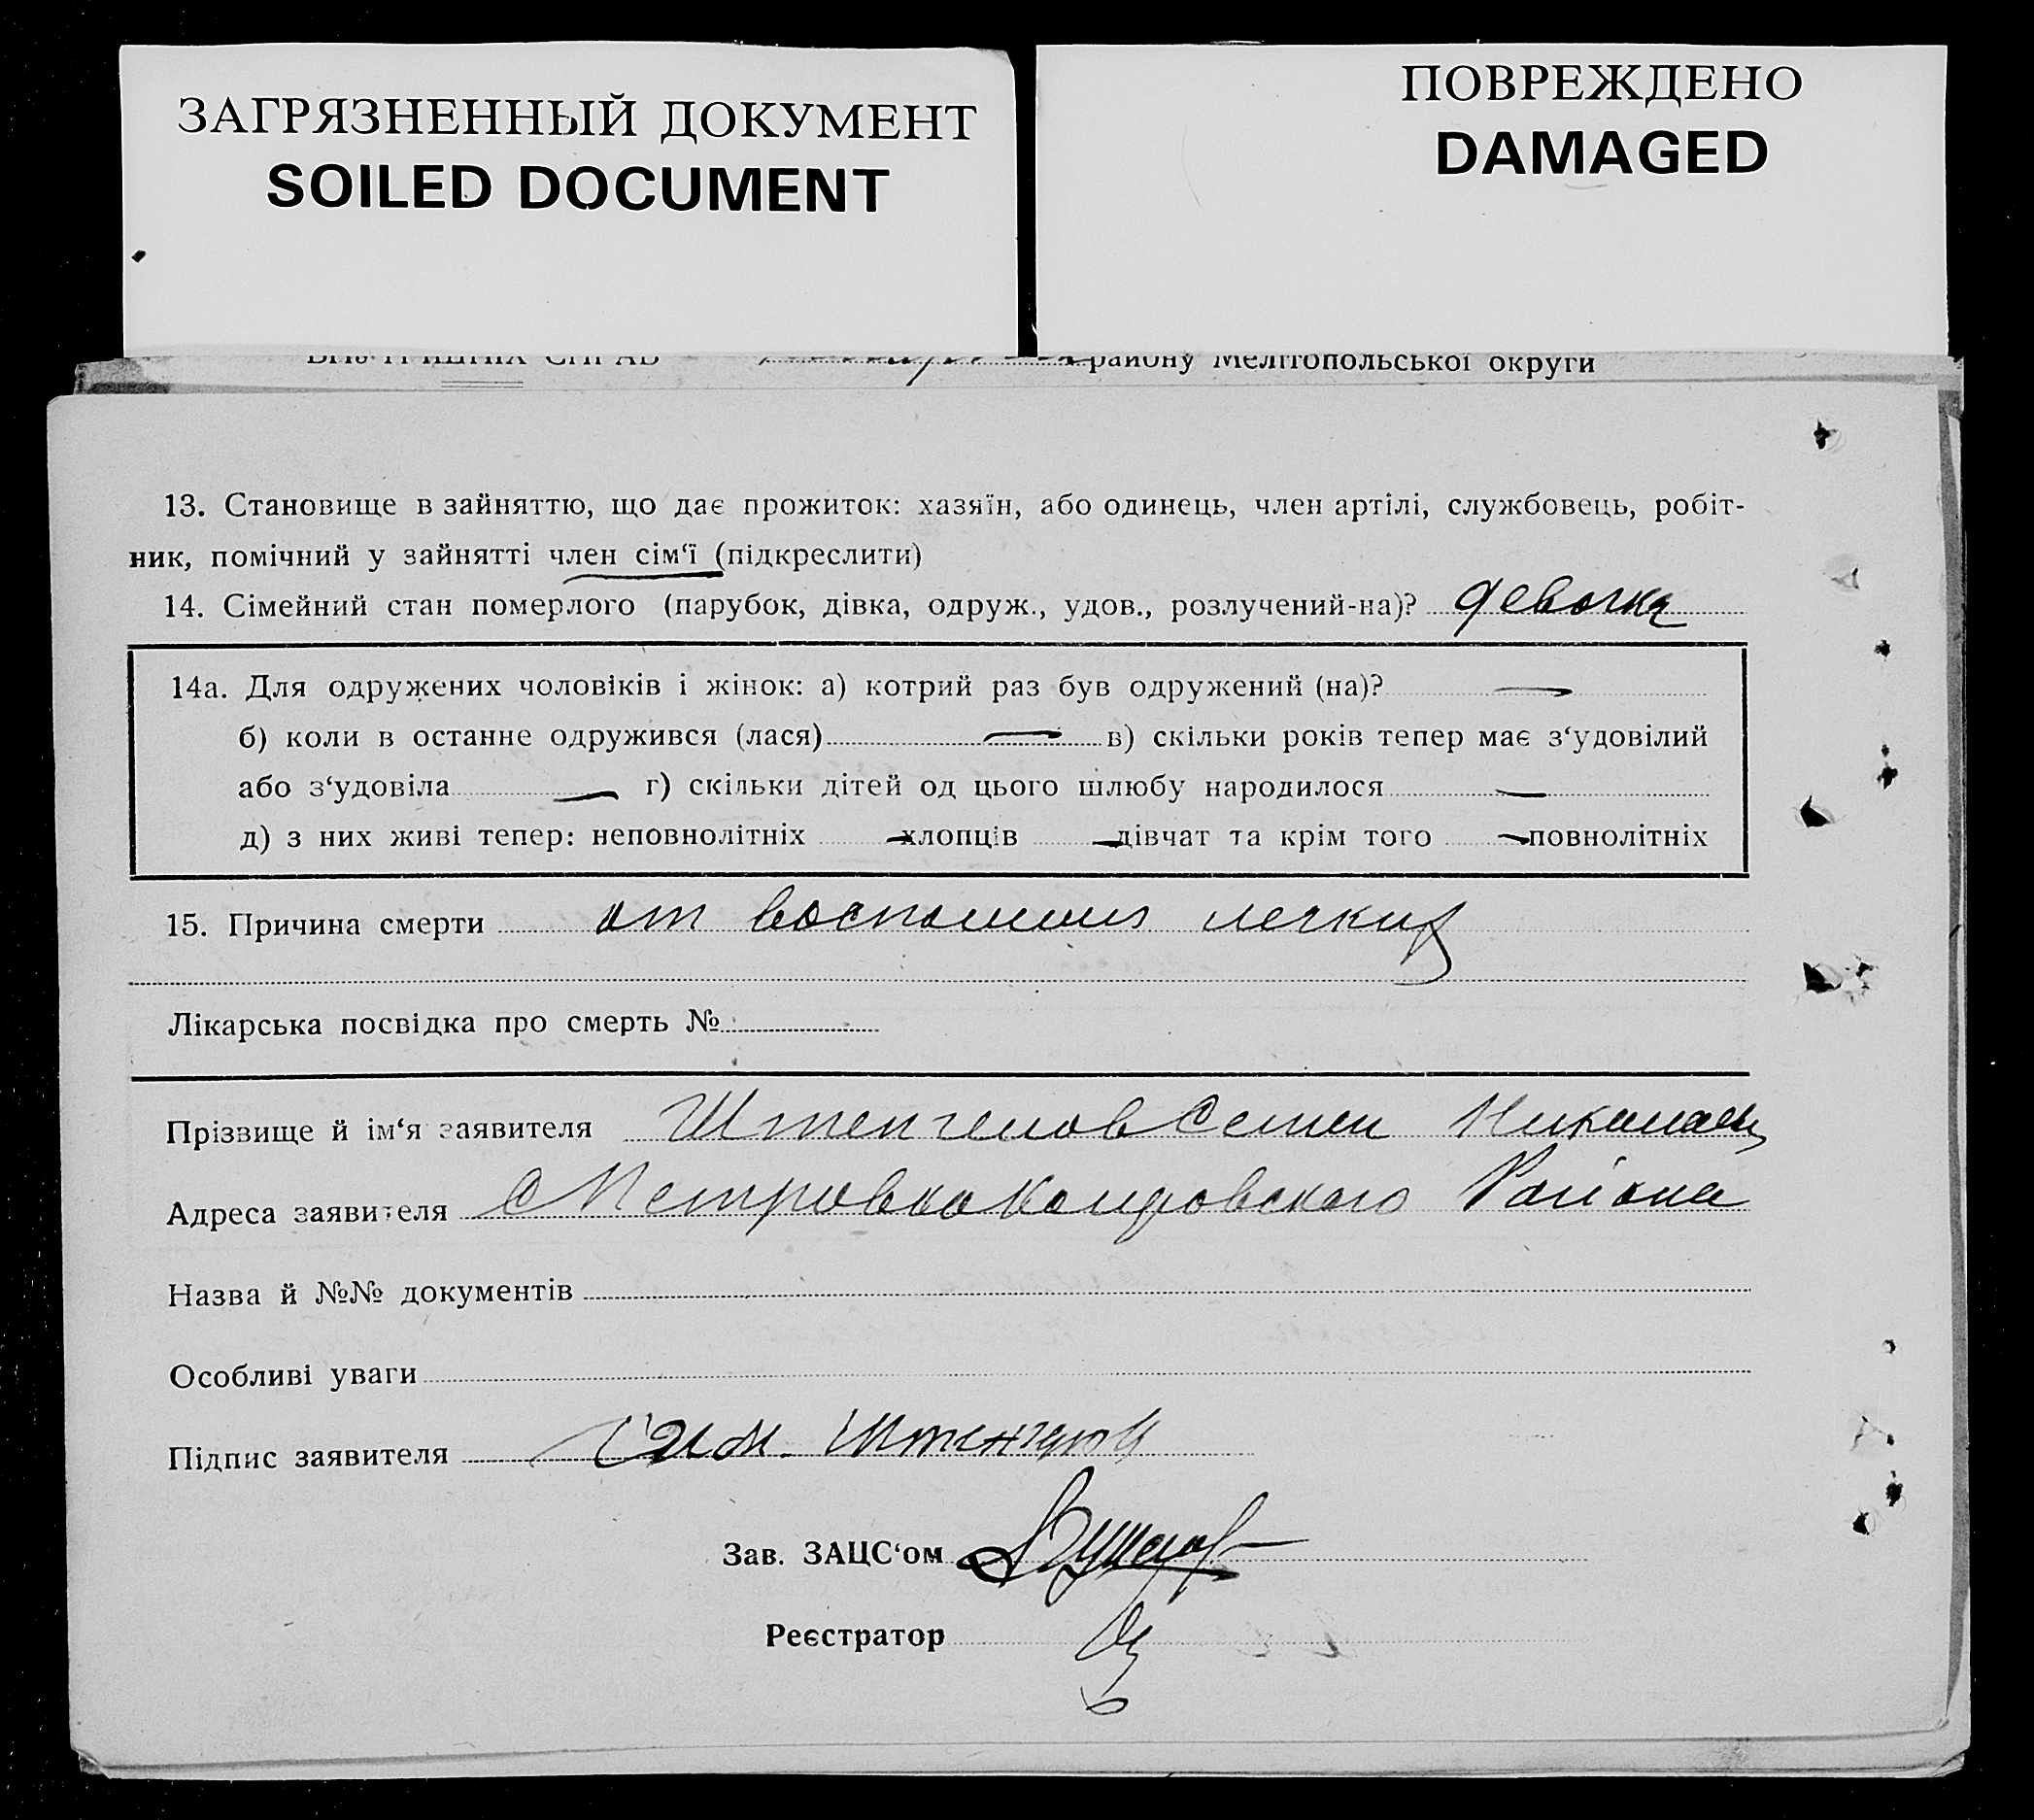 ЗАГРЯЗНЕННЫЙ ДОКУМЕНТ
SOILED DOCUMENT
ПОВРЕЖДЕНО
DAMAGED
району Мелітопольської округи
13. Становище в зайняттю, що дає прожиток: хазяїн, або одинець, член артілі, службовець, робіт-
ник, помічний у зайнятті член сім‘ї (підкреслити)
14. Сімейний стан померлого (парубок, дівка, одруж., удов., розлучений-на)? девочка
14а. Для одружених чоловіків і жінок: а) котрий раз був одружений (на)? —
б) коли в останнє одружився (лася) — в) скільки років тепер має з‘удовілий
або з‘удовіла — г) скільки дітей од цього шлюбу народилося —
д) з них живі тепер: неповнолітніх — хлопців — дівчат та крім того — повнолітніх
15. Причина смерти от воспаления легких
Лікарська посвідка про смерть №
Прізвище й ім‘я заявителя Семен Николаев
Адреса заявителя с Петровка Района
Назва й №№ документів
Особливі уваги
Підпис заявителя
Зав. ЗАЦС‘ом
Реєстратор